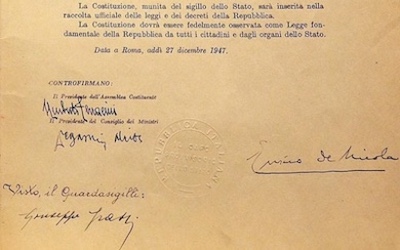 La Costituzione, munita del sigillo dello Stato, sarà inserita nella
raccolta ufficiale delle leggi e dei decreti della Repubblica.
La Costituzione dovrà essere fedelmente osservata come Legge fon-
damentale della Repubblica da tutti i cittadini e dagli organi dello Stato.
Data a Roma, addì 27 dicembre 1947.
CONTROFIRMANO:
Il Presidente dell'Assemblea Costituente
Umberto Terracini
Il Presidente del Consiglio dei Ministri
Enrico De Nicola
Visto, il Guardasigilli
Giuseppe Grassi